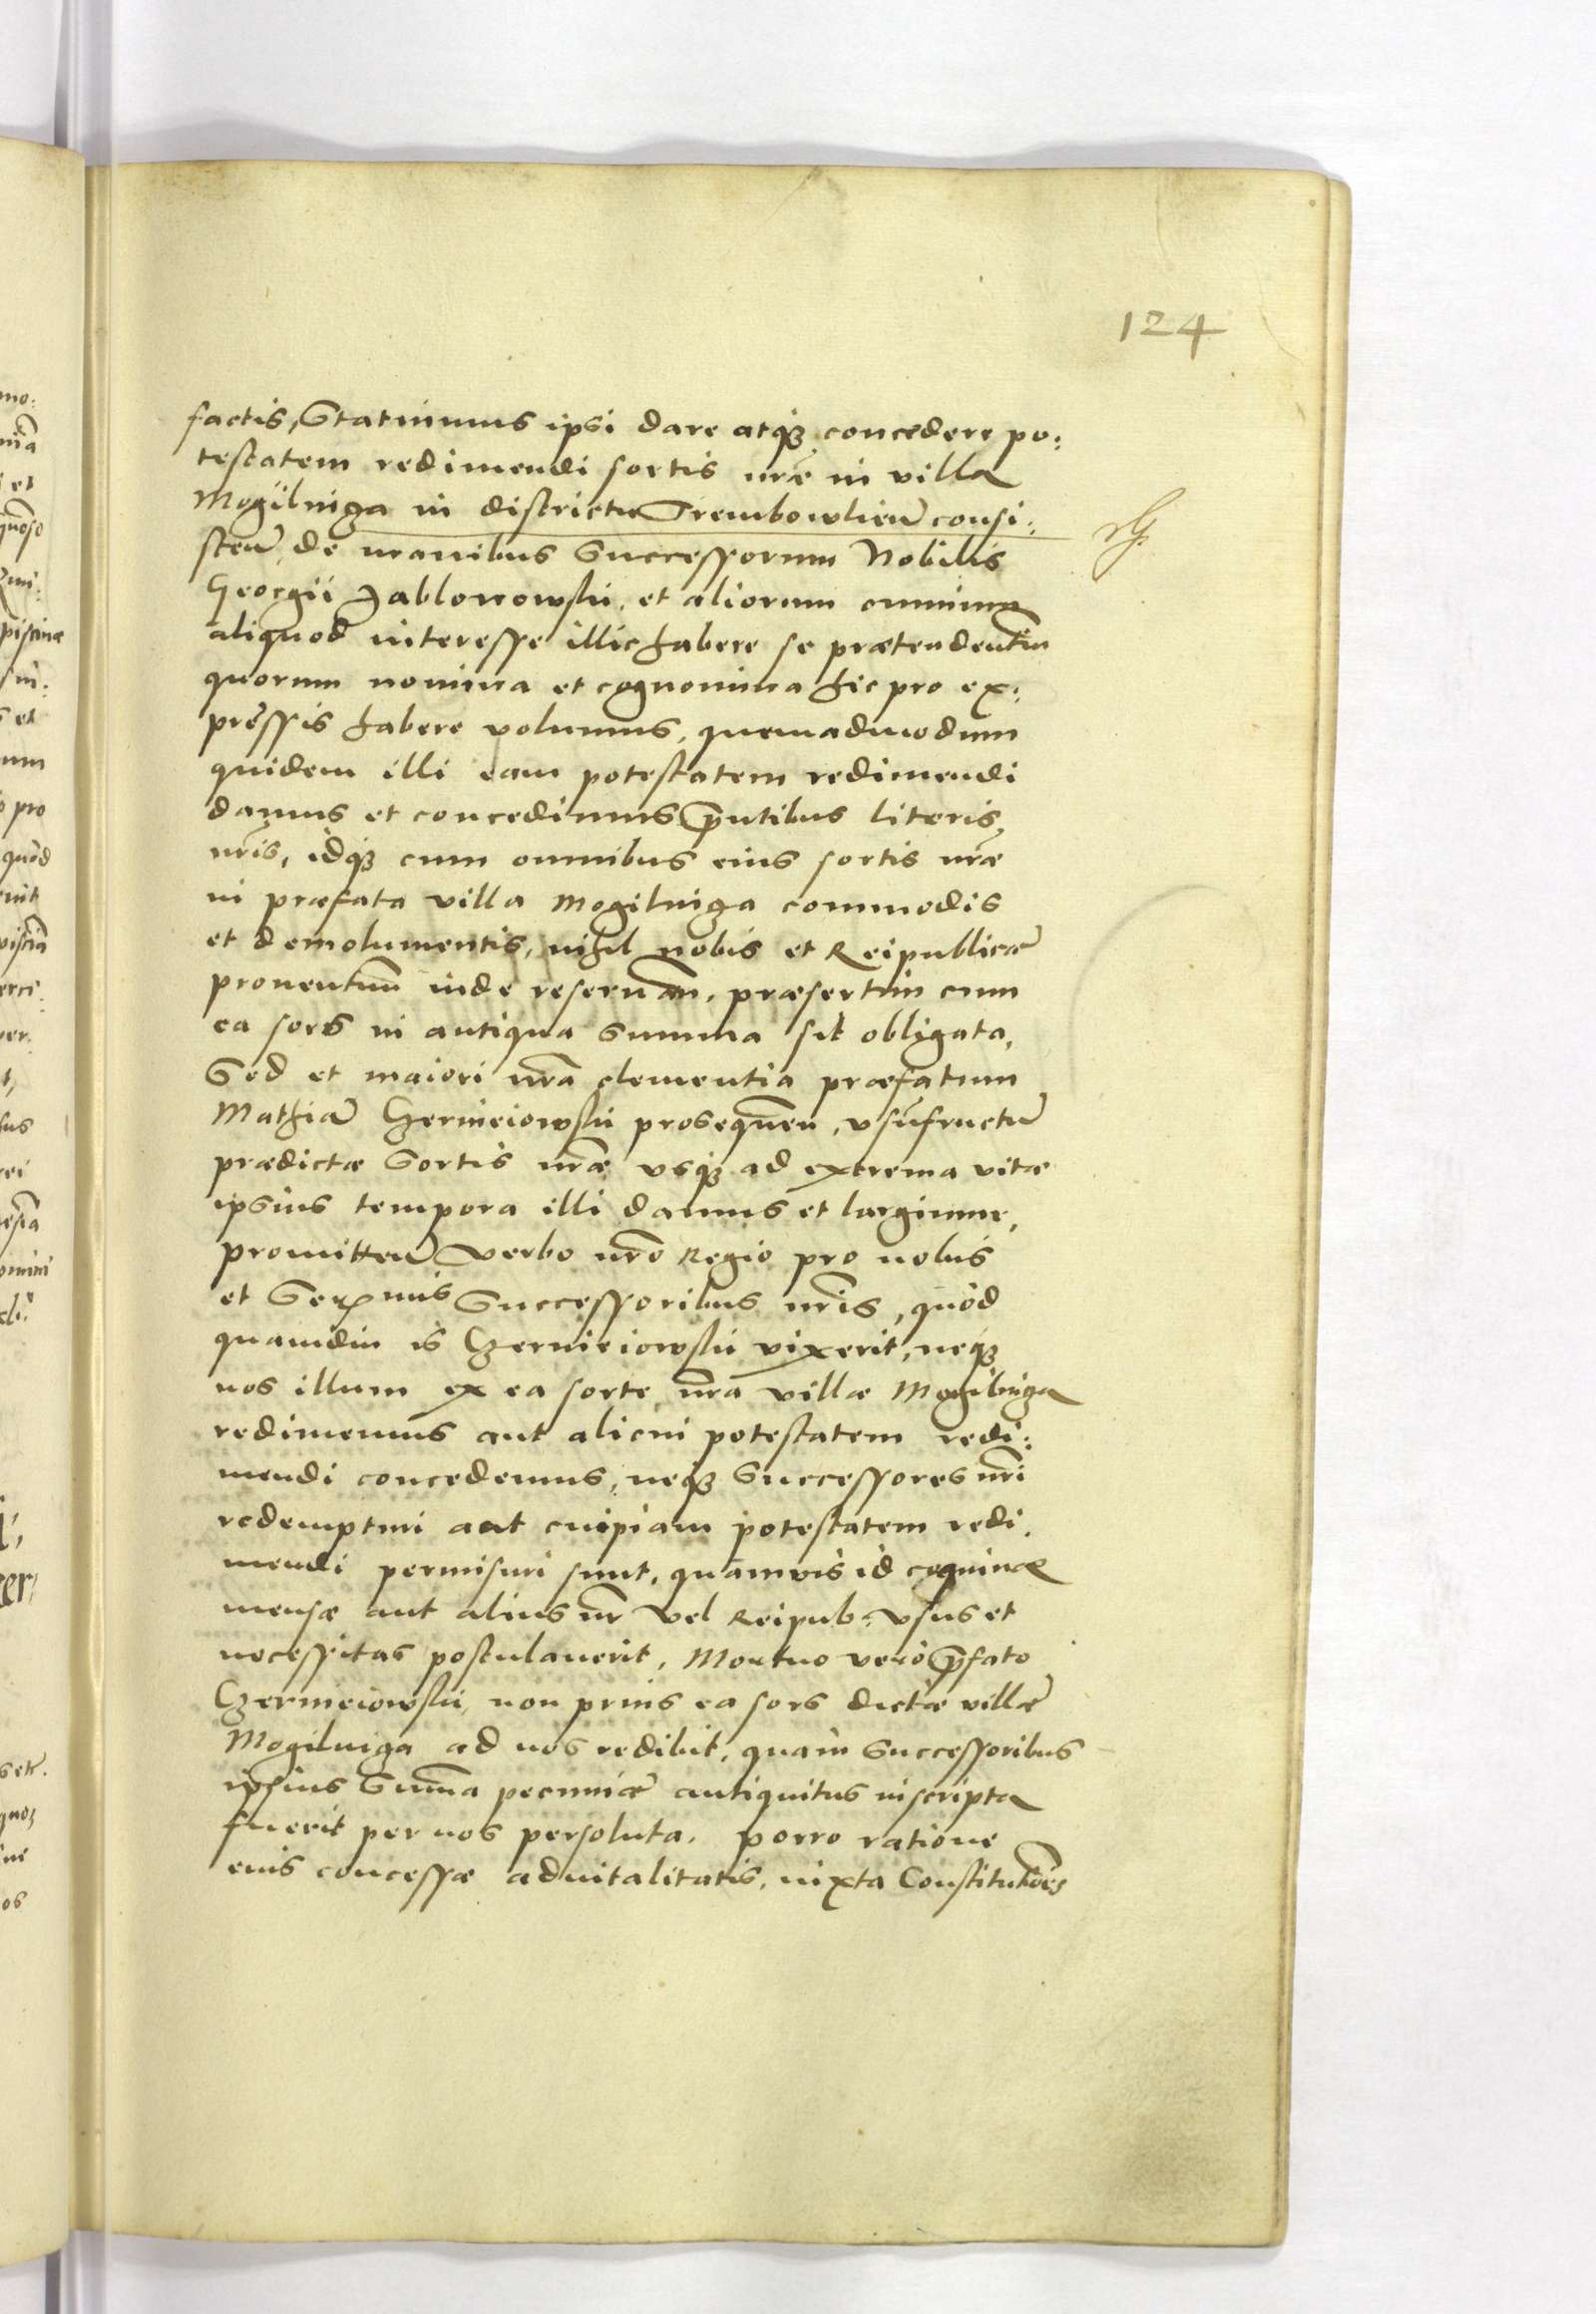 124
factis, Statuimus ipsi dare atq₃ concedere po:
testatem redimendi sortis nr̃æ in villa
Mogilniga in districtu Trembowlieñ consi:
steñ de manibus Successorum Nobilis
Georgii Jablonowski, et aliorum omnium
aliquod interesse illic habere se prætendentiũ
quorum nomina et cognomina hic pro ex:
pressis habere volumus, quemadmodum
quidem illi eam potestatem redimendi
damus et concedimus p̃ntibus literis
nr̃is, idq₃ cum omnibus eius sortis nr̃æ
in præfata villa Mogilniga commodis
et emolumentis, nihil nobis et Reipublicæ
prouentuũ inde reseruañ, præsertim cum
ea sors in antiqua summa sit obligata,
Sed et maiori nr̃a clementia præfatum
Mathiã Czermieiowski prosequeñ, vsũfructũ
prædictæ Sortis nr̃æ vsq₃ ad extrema vitæ
ipsius tempora illi damus et largimur,
promitteñ verbo nr̃o Regio pro nobis
et Ser^mis Successoribus nr̃is, quòd
quamdiu is Czermieiowski vixerit, neq₃
nos illum ex ea sorte nr̃a villæ Mogilniga
redimemus aut alicui potestatem redi:
mendi concedemus, neq₃ Successores nr̃i
redempturi aut cuipiam potestatem redi,
mendi permisuri sunt, quamuis id coquinæ
mensæ aut alius nr̃ vel Reipub: vsus et
necessitas postulauerit, Mortuo verò p̃fato
Czermieiowski, non prius ea sors dictæ villæ
Mogilniga ad nos redibit, quàm Successoribus
ipsius Sum̃a pecuniæ antiquitus inscripta
fuerit per nos persoluta. porro ratione
eius concessæ aduitalitatis, iuxta Constitutiões